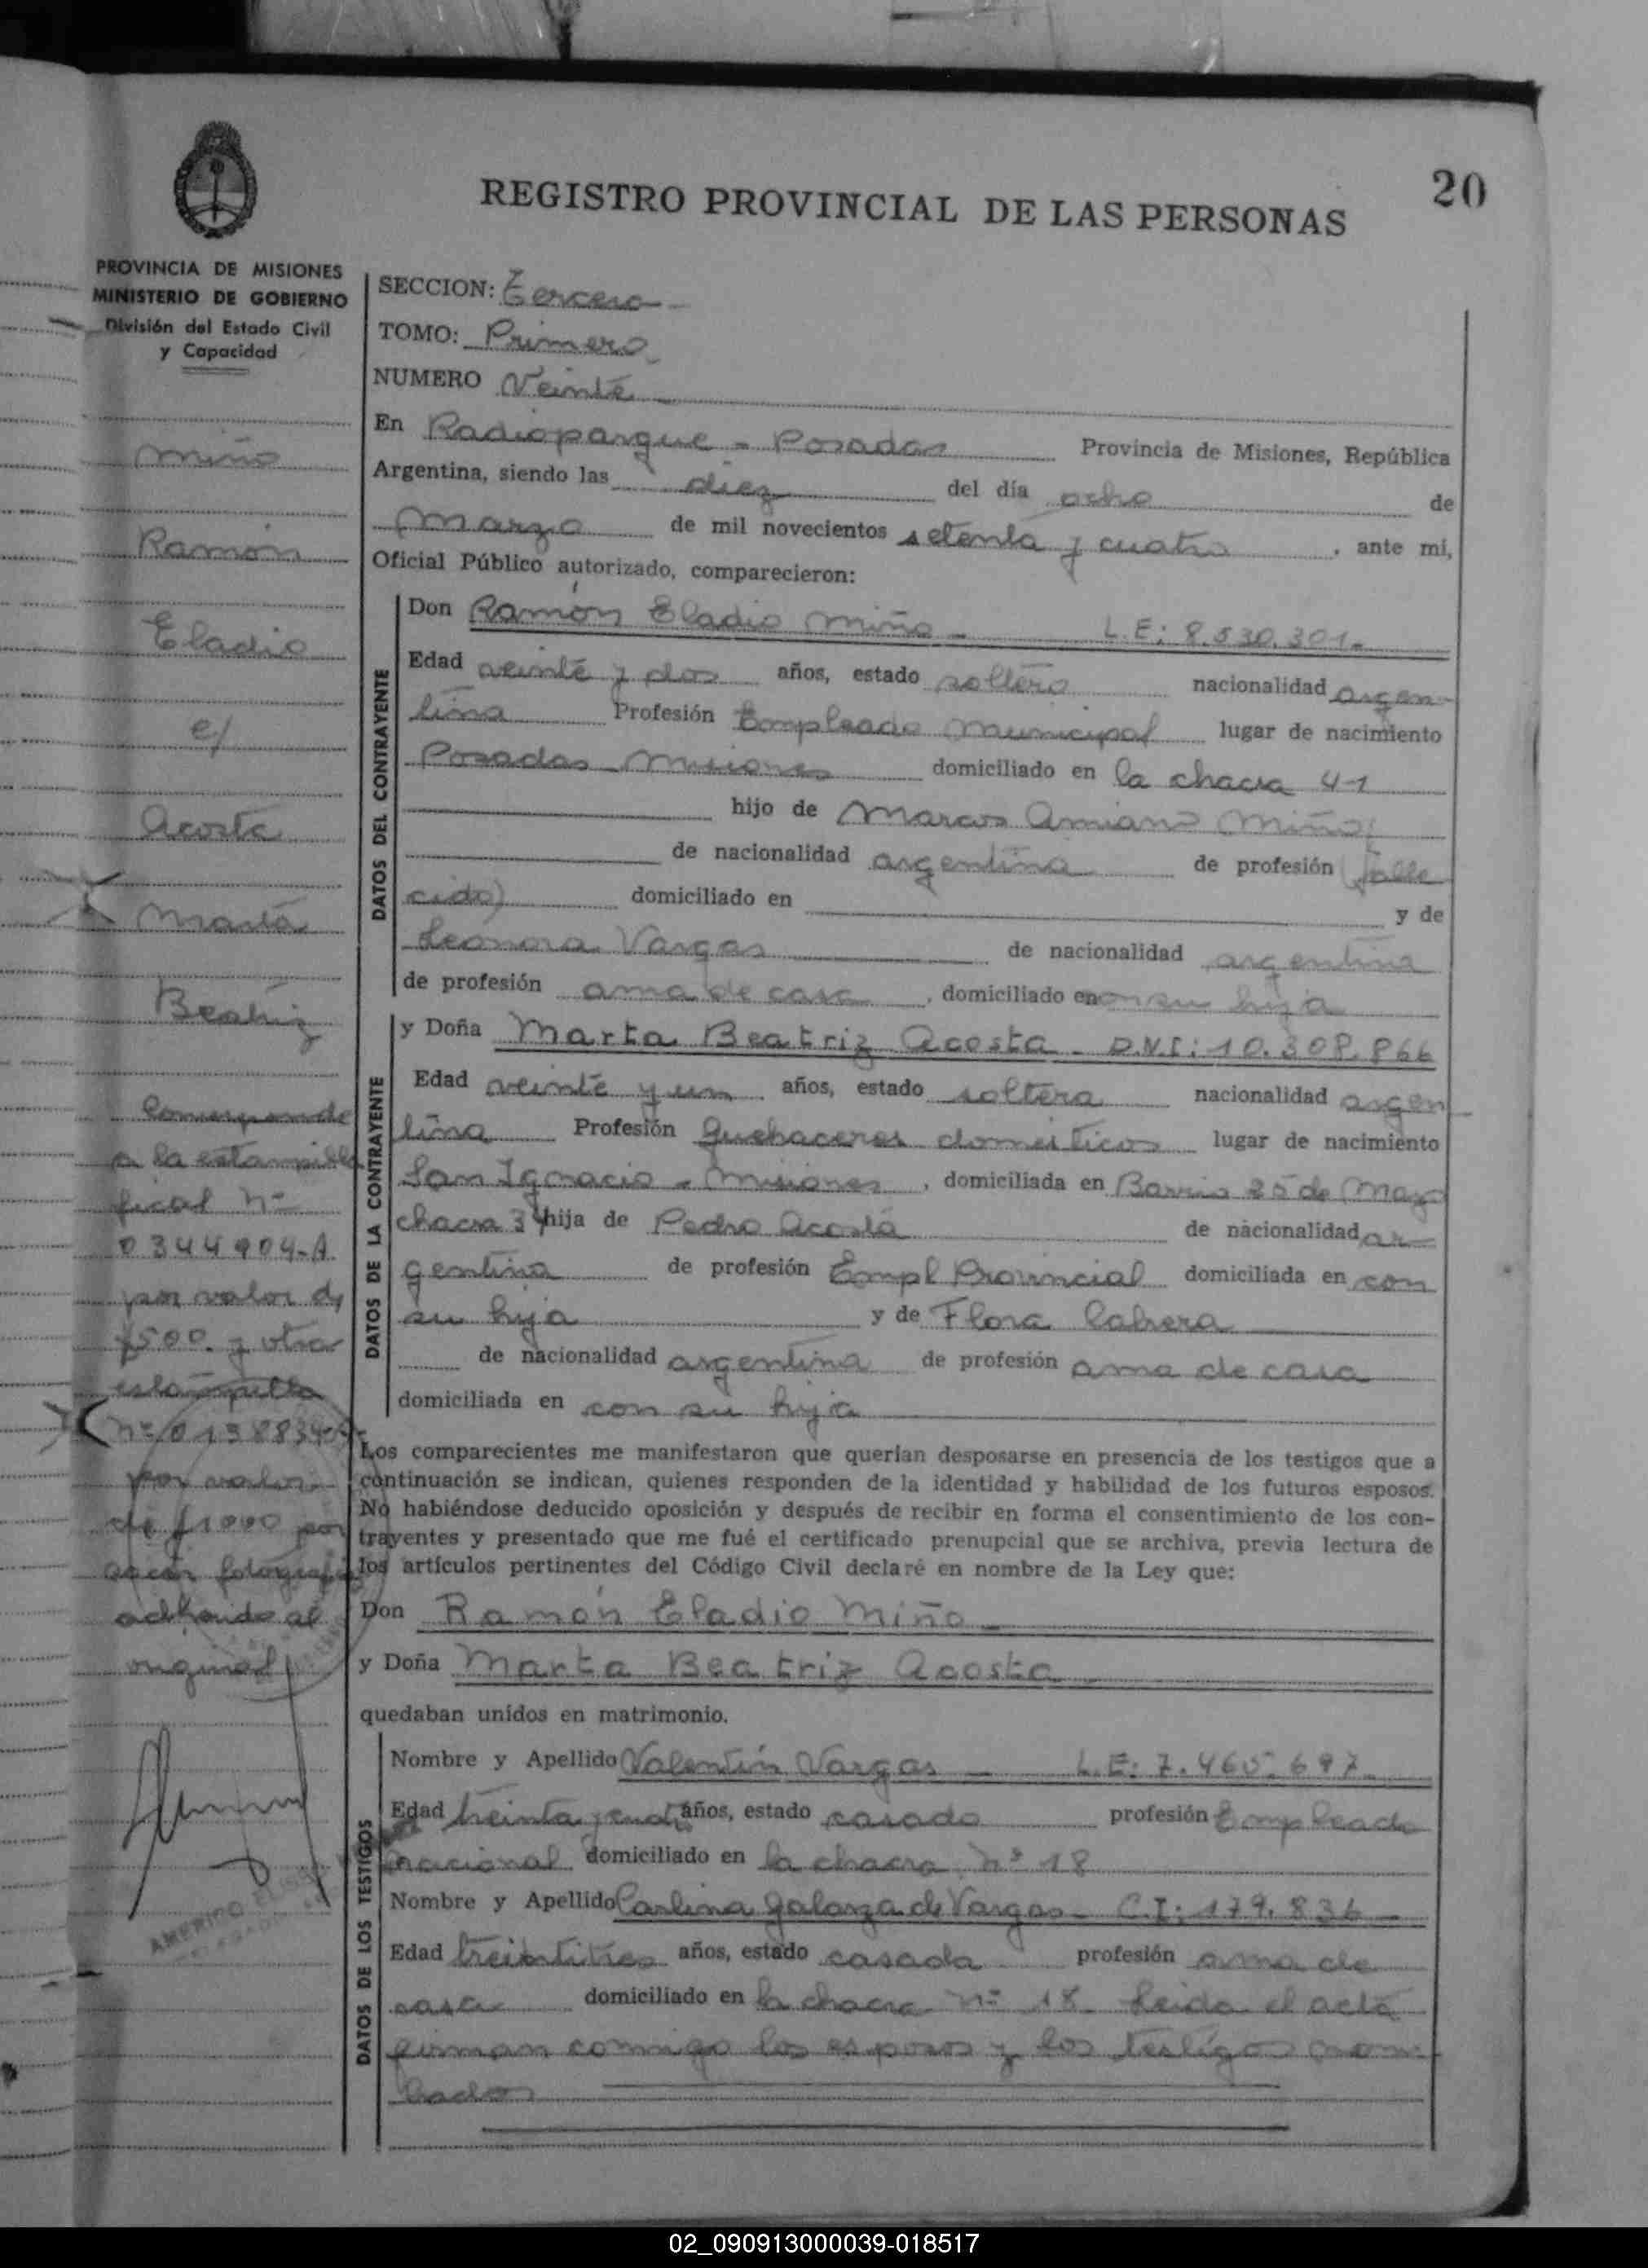 REGISTRO PROVINCIAL DE LAS PERSONAS
20
PROVINCIA DE MISIONES
MINISTERIO DE GOBIERNO
División del Estado Civil
y Capacidad
Miño
Ramón
Eladio
c/
Acosta
Marta
Beatriz
Corresponde
a la estampilla
fiscal Nº
0344904-A
por valor de
$500. y otra
estampilla
Nº 0138834-A
por valor
de $1000 por
sacar fotografia
adherida al
original
AMERICO
SECCION: Tercera
TOMO: Primero
NUMERO Veinte
En Radioparque - Posadas Provincia de Misiones, República
Argentina, siendo las diez del día ocho de
Marzo de mil novecientos setenta y cuatro, ante mí,
Oficial Público autorizado, comparecieron:
DATOS DEL CONTRAYENTE
Don Ramón Eladio Miño - L.E: 8.530.301.-
Edad veinte y dos años, estado soltero nacionalidad argen-
tina Profesión Empleado Municipal lugar de nacimiento
Posadas Misiones domiciliado en la chacra 41
hijo de Marcos Amiano Miño
de nacionalidad argentina de profesión (falle
cido) domiciliado en y de
Leonora Vargas de nacionalidad argentina
de profesión ama de casa, domiciliado en su hija
DATOS DE LA CONTRAYENTE
y Doña Marta Beatriz Acosta - D.N.I: 10.308.866
Edad veinte y un años, estado soltera nacionalidad argen
tina Profesión Quehaceres domesticos lugar de nacimiento
San Ignacio - Misiones, domiciliada en Barrio 25 de Mayo
chacra 34 hija de Pedro Acosta de nacionalidad ar-
gentina de profesión Empl Provincial domiciliada en con
su hija y de Flora Cabrera
de nacionalidad argentina de profesión ama de casa
domiciliada en con su hija
Los comparecientes me manifestaron que querían desposarse en presencia de los testigos que a
continuación se indican, quienes responden de la identidad y habilidad de los futuros esposos.
No habiéndose deducido oposición y después de recibir en forma el consentimiento de los con-
trayentes y presentado que me fué el certificado prenupcial que se archiva, previa lectura de
los artículos pertinentes del Código Civil declaré en nombre de la Ley que:
Don Ramón Eladio Miño
y Doña Marta Beatriz Acosta
quedaban unidos en matrimonio.
DATOS DE LOS TESTIGOS
Nombre y Apellido Valentín Vargas - L.E: 7.465.697.-
Edad treinta y cuatro años, estado casado profesión Empleado
nacional domiciliado en la chacra nº 18
Nombre y Apellido Carlina Galarza de Vargas - C.I: 179.836 -
Edad treintitres años, estado casada profesión ama de
casa domiciliado en la chacra nº 18. Leida el acta
firman conmigo los esposos y los testigos nom-
brados
02_090913000039-018517